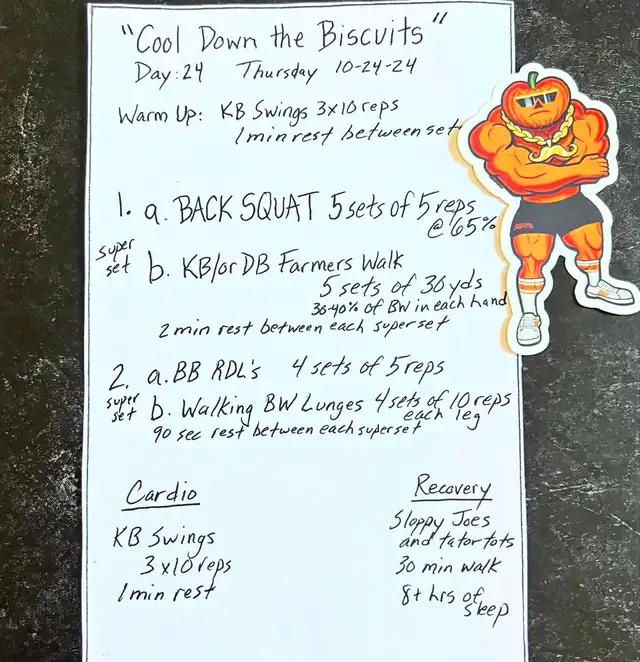 "Cool Down the Biscuits"
Day: 24 Thursday 10-24-24
Warm Up: KB Swings 3x10 reps
1 min rest between set
1. a. BACK SQUAT 5 sets of 5 reps
@ 65%
super
set
b. KB/or DB Farmers Walk
5 sets of 30 yds
30-40% of BW in each hand
2 min rest between each superset
2. a. BB RDL's 4 sets of 5 reps
super
set
b. Walking BW Lunges 4 sets of 10 reps
each leg
90 sec rest between each superset
Cardio
KB Swings
3 x10 reps
1 min rest
Recovery
Sloppy Joes
and tator tots
30 min walk
8+ hrs of
sleep